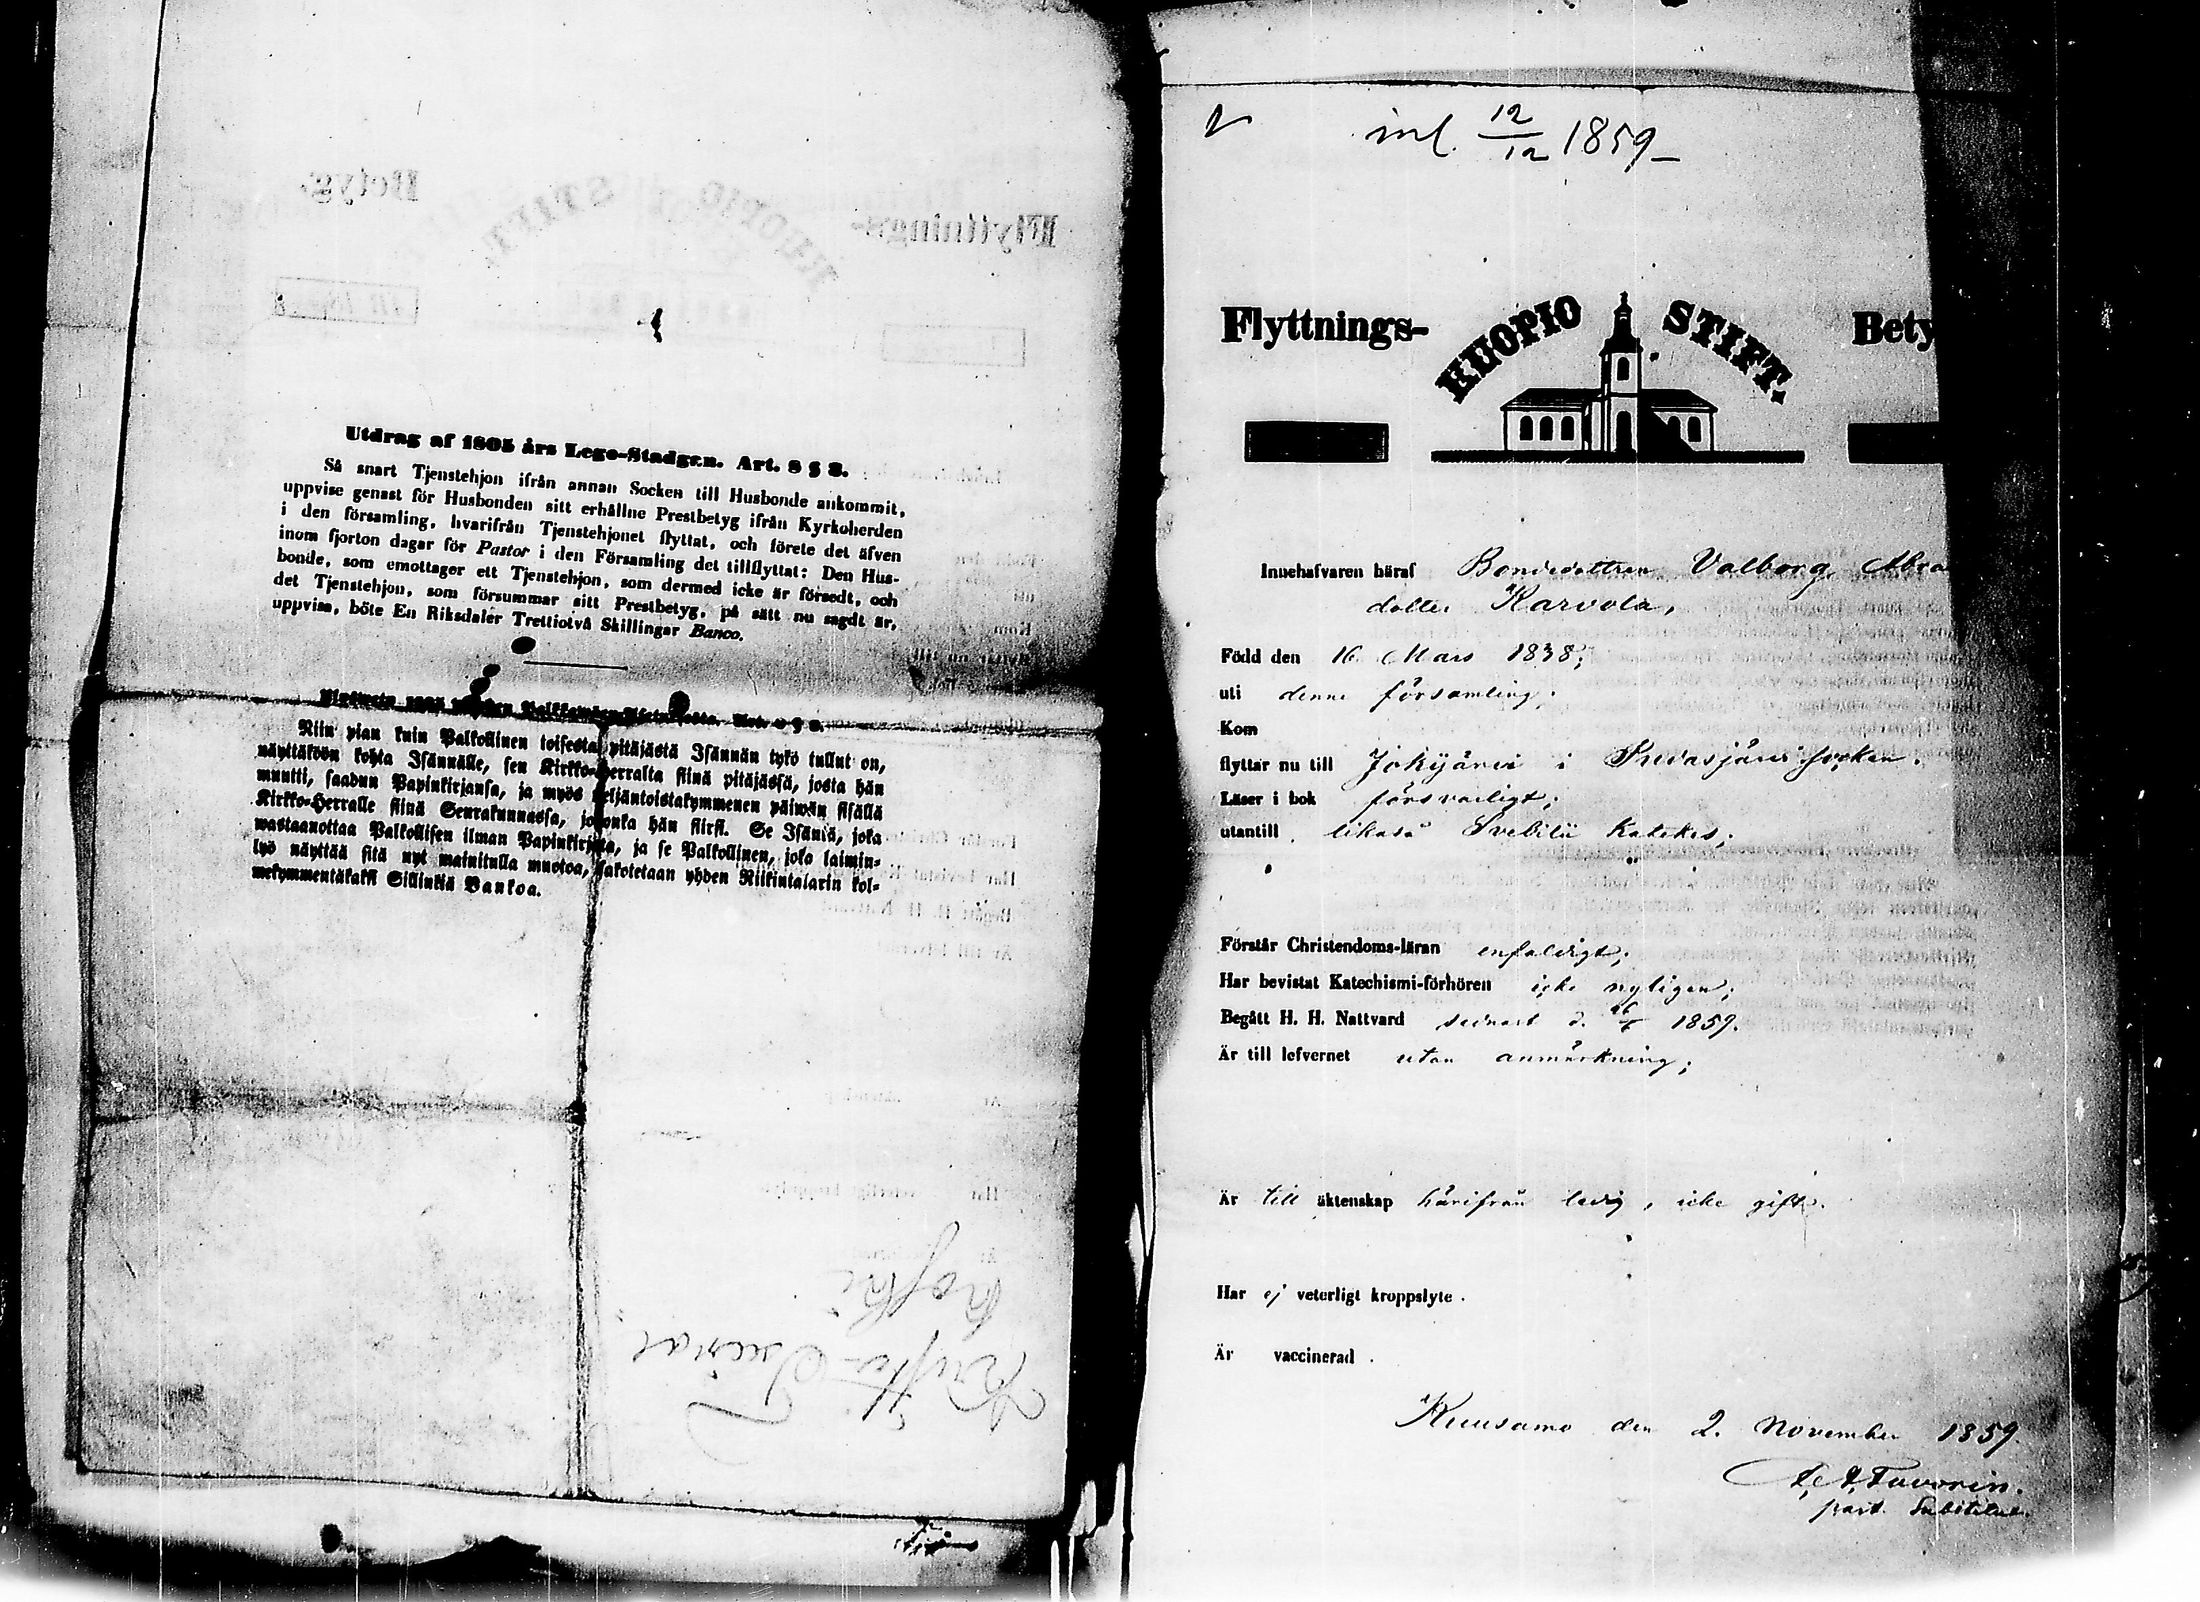 Utdrag af 1805 års Lego-Stadgen. Art. 8 § 8.
Så snart Tjenstehjon ifrån annan Socken till Husbonde ankommit,
uppvise genast för Husbonden sitt erhållne Prestbetyg ifrån Kyrkoherden
i den församling, hvarifrån Tjenstehjonet flyttat, och förete det äfven
inom fjorton dagar för Pastor i den Församling det tillflyttat: Den Hus-
bonde, som emottager ett Tjenstehjon, som dermed icke är försedt, och
det Tjenstehjon, som försummar sitt Prestbetyg, på sätt nu sagdt är,
uppvisa, böte En Riksdaler Trettiotvå Skillingar Banco.
Niin pian kuin Palkollinen toisesta pitäjästä Isännän tykö tullut on,
näyttäköön kohta Isännälle, sen Kirkko-Herralta siinä pitäjässä, josta hän
muutti, saadun Papinkirjansa, ja myös neljäntoistakymmenen päiwän sisällä
Kirkko-Herralle siinä Seurakunnassa, johonka hän siirsi. Se Isäntä, joka
wastaanottaa Palkollisen ilman Papinkirjata, ja se Palkollinen, joka laimin-
lyö näyttää sitä nyt mainitulla muotoa, sakotetaan yhden Riikintalarin kol-
mekymmentäkaksi Sillinkiä Bankoa.
inl. 12/12 1859
Flyttnings- KUOPIO STIFT. Bety
Innehafvaren häraf Bondedottren Valborg Abra
dotter Karvola,
Född den 16 Mars 1838;
uti denna församling;
Kom
flyttar nu till Jokijärvi i Pudasjärvi socken.
Läser i bok försvarligt;
utantill likaså Svebilii Katekes;
Förstår Christendoms-läran enfaldigt;
Har bevistat Katechismi-förhören icke nyligen;
Begått H. H. Nattvard sednast d. 26/6 1859.
Är till lefvernet utan anmärkning;
Är till äktenskap härifrån ledig, icke gift.
Har ej veterligt kroppslyte.
Är vaccinerad.
Kuusamo den 2. November 1859.
Favorin.
past. Substitut.